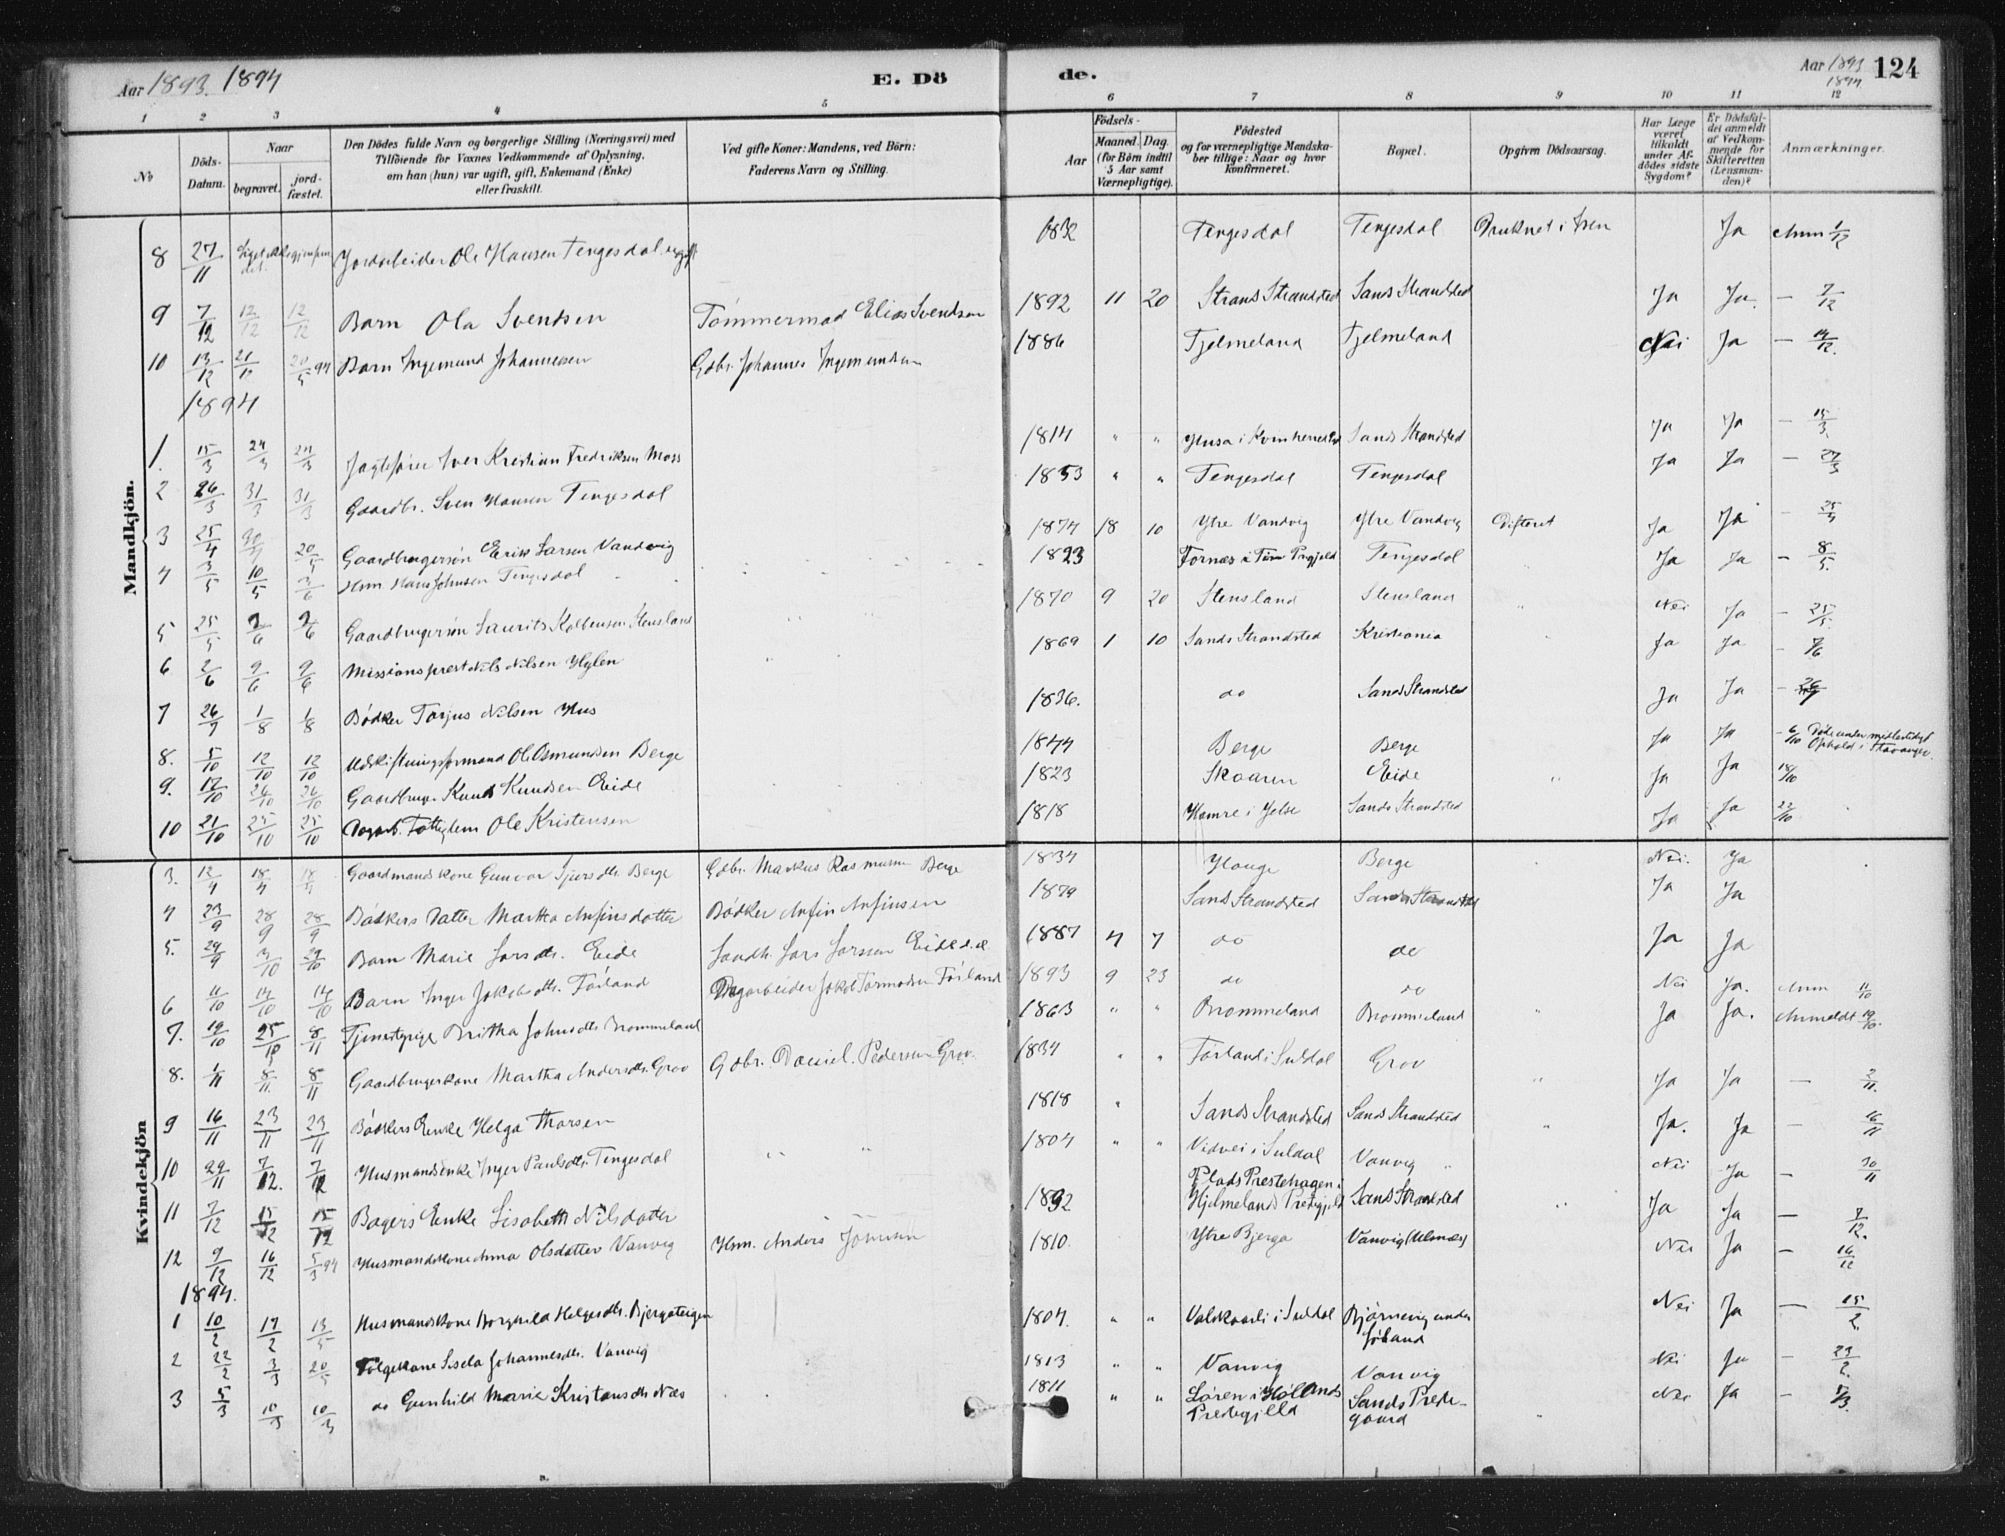 Aar 1893. 1894
E. Dö de.
Aar 1893 1894
124
1 2 3 4 5 6 7 8 9 10 11 12
No
Döds-Datum.
Naar
begravet.
jord-fæstet.
Den Dödes fulde Navn og borgerlige Stilling (Næringsvei) med
Tilföiende for Voxnes Vedkommende af Oplysning,
om han (hun) var ugift, gift, Enkemand (Enke)
eller fraskilt.
Ved gifte Koner: Mandens, ved Börn:
Faderens Navn og Stilling.
Födsels-
Aar
Maaned. Dag
(for Börn indtil
5 Aar samt
Værnepligtige).
Födested
og for værnepligtige Mandska-
ber tillige: Naar og hvor
konfirmeret.
Bopæl.
Opgiven Dödsaarsag.
Har Læge
været
tilkaldt
under Af-
dödes sidste
Sygdom?
Er Dödsfal-
det anmeldt
af Vedkom-
mende for
Skifteretten
(Lensman-
den)?
Anmærkninger.
Mandkjön.
8 27/11 Jordarbeider Ole Hansen Tengesdal ugift 1832 Tengesdal Tengesdal Druknet i Ja Anm 1/12
9 7/12 12/12 12/12 Barn Ola Svendsen Tømmermad Elias Svendsen 1892 11 20 Strands Strandsted Sands Strandsted Ja Ja - 7/12
10 13/12 21/12 20/5 94 Barn Ingemund Johannessen Gdbr. Johannes Ingemundsen 1886 Fjelmeland Fjelmeland Nei Ja - 14/12.
1894
1. 15/3 24/3 24/3 Jagtefører Iver Kristian Fredriksen Moss 1814 " " Husa i Kvinherred Sands Strandsted Ja Ja - 15/3.
2 26/3 31/3 31/3 Gaardbr. Sven Hansen Tengesdal 1853 " " Tengesdal Tengesdal Ja Ja - 27/3
3 25/4 30/4 20/5 Gaardbrugersøn Erik Larsen Vandvig 1874 18 10 Ytre Vandvig Ytre Vandvig Difterit Ja Ja - 25/4
4 3/5 10/5 3/6 Hsm. Hans Johnsen Tengesdal 1823 Fornæs i Prgjeld Tengesdal Ja Ja - 8/5.
5 25/5 2/6 2/6 Gaardbrugersøn Laurits Kolbensen Stensland 1870 9 20 Stensland Stensland Nei Ja - 25/5.
6 2/6 9/6 9/6 Missionsprest Nils Nilsen Hylen 1869 1 10 Sands Strandsted Kristiania Ja Ja - 7/6
7 26/7 1/8 1/8 Bødker Torjus Nilsen Hus 1836. do Sands Strandsted Ja Ja - 26/7
8. 5/10 12/10 12/10 Udskiftningsformand Ole Osmundsen Berge 1844 Berge Berge Ja Ja - 6/10 Døde under midlertidigt Ophold i Stavanger.
9. 17/10 26/10 26/10 Gaardbruger Knud Knudsen Eide 1823 Skaaren Eide Ja Ja 18/10
10 21/10 25/10 25/10 Fattiglem Ole Kristensen 1818 Hamre i Jelse Sands Strandsted Ja Ja 22/10
Kvindekjön
3. 12/4 18/4 18/4 Gaardmandskone Gunvor Sjursdtr. Berge Gdbr. Markus Rasmusen Berge 1834 Hauge Berge Nei. Ja
4 23/9 28/9 28/9 Bødkers Datter Martha Anfinsdatter Bødker Anfin Anfinsen 1879 Sands Strandsted Sands Strandsted Ja Ja
5. 29/9 3/10 Barn Marie Larsdtr. Eide Landh. Lars Larssen Eide 1887 4 7 do do Ja Ja
6 11/10 14/10 14/10 Barn Inger Jakobsdtr. Førland Dagarbeider Jakob Tormodsen Førland 1893 9 23 do do Nei Ja. Anm 11/10
7. 19/10 25/10 8/11 Tjenestepige Britha Johnsdtr. Brommeland 1863 " " Brommeland Brommeland Ja Ja. Anmeldt 19/10.
8. 1/11 8/11 8/11 Gaardbrugerkone Martha Andersdtr. Grov Gdbr. Daniel Pedersen Grov. 1834 " " Førland i Suldal Grov Ja Ja - 2/11.
9 16/11 23/11 23/11 Bødkers Enke Helga Thorsen 1818 " Sands Strandsted Sands Strandsted Ja. Ja - 16/11
10 29/11 7/12. 7/12 Husmandsenke Inger Paulsdtr. Tengesdal 1804 " " Vidvei i Suldal Vanvig Nei Ja - 30/11
11 7/12 15/12 15/12 Bagers Enke Lisabeth Nilsdatter 1892 Plads Prestehagen i Hjelmelands Prestegjeld Sands Strandsted Ja Ja - 7/12.
12 9/12 16/12 5/3 94 Husmandskone Anna Olsdatter Vanvig Hsm. Anders 1810. Ytre Bjerga Vanvig (Ulsnæs) Nei Ja - 16/12
1894.
1 10/2 17/2 13/5 Husmandskone Borghild Helgesdtr. Bjergateigen 1804. " " Valskaarli i Suldal Bjørnevig under Nei Ja - 15/2.
2 22/2 3/3 20/5 Følgekone Sisela Johannesdtr. Vanvig 1813 " " Vanvig Vanvig Nei Ja - 23/2.
3 5/3 10/3 10/3 do Gunhild Marie Kristensdtr. Næs 1811 " " Løren i Hollands Prestegjeld Sands Preste-gaard Nei Ja - 5/3.